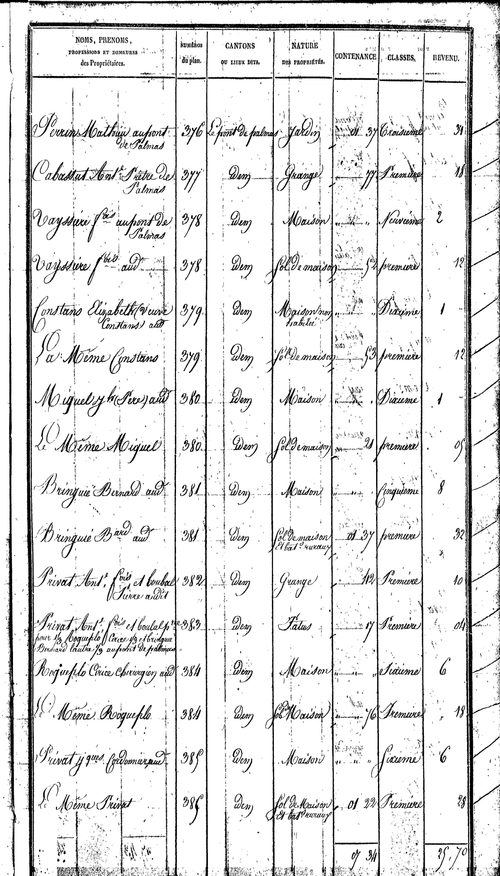 NOMS, PRENOMS, PROFESSIONS ET DEMEURES des Propriétaires. | NUMÉROS du plan. | CANTONS OU LIEUX DITS. | NATURE DES PROPRIÉTÉS. | CONTENANCE | CLASSES, | REVENU.
Perrins Mathieu au pont de Palmas 376 Le pont de palmas Jardin 01 37 Troisième 34
Cabassut Ant. Prêtre de Palmas 377 idem Grange 77 Première 18
Vayssure fois au pont de Palmas 378 idem Maison " " Neuvième 2
Vayssure fois aud 378 idem Sol de maison 52 première 12
Constans Elizabeth (Veuve Constans) aud 379 idem Maison non habitée " " Dixième 1
La Même Constans 379 idem Sol de maison 53 première 12
Miquel (Père) aud 380 idem Maison " " Dixième 1
Le Même Miquel 380 idem Sol de maison 21 première 05
Bringuié Bernard aud 381 idem Maison " " Cinquième 8
Bringuié Bard aud 381 idem Sol de maison et bat. ruraux 01 37 première 32
Privat Ant. fois et Pierre audit 382 idem Grange 42 Première 10
Privat Ant. fois 383 idem Patus 17 Première 04
pour 1/3 Roqueplo Cirice 1/3 et bringuié
Bernard l'autre 1/3 au pont de palmas
Roqueplo Cirice Chirurgien aud 384 idem Maison " " Sixième 6
Le Même Roqueplo 384 idem Sol Maison 76 Première 18
Privat Cordonnier aud 385 idem Maison " " Sixième 6
Le Même Privat 385 idem Sol de Maison et bat. ruraux 01 22 Première 28
07 34 25 70